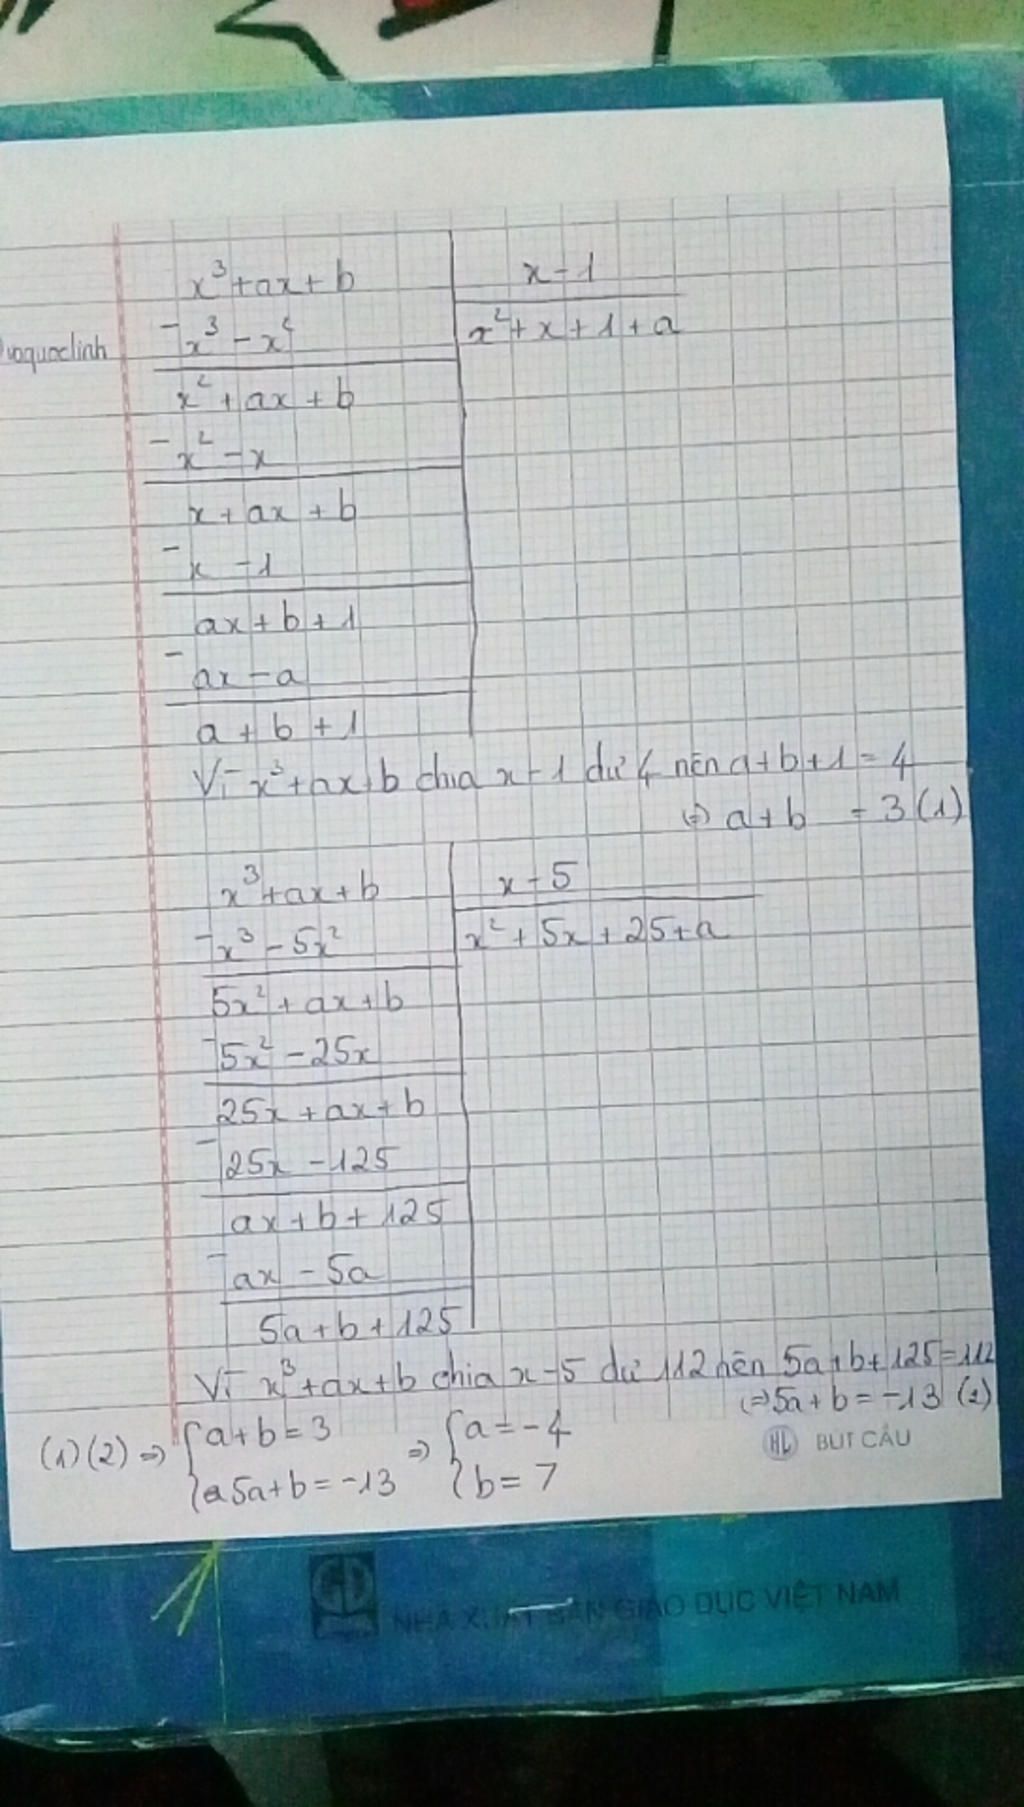 x³+ax+b x-1
-x³-x² x²+x+1+a
x²+ax+b
-x²-x
x+ax+b
-x-1
ax+b+1
-ax-a
a+b+1
Vì x³+ax+b chia x-1 dư 4 nên a+b+1=4
(=) a+b = 3 (1)
x³+ax+b x-5
-x³-5x² x²+5x+25+a
5x²+ax+b
-5x²-25x
25x+ax+b
-25x-125
ax+b+125
-ax-5a
5a+b+125
Vì x³+ax+b chia x-5 dư 112 nên 5a+b+125=112
(=) 5a+b=-13 (2)
(1)(2) => { a+b=3 => { a=-4
5a+b=-13 b=7
HL BUT CÂU
NHÀ XUẤT BẢN GIÁO DỤC VIỆT NAM